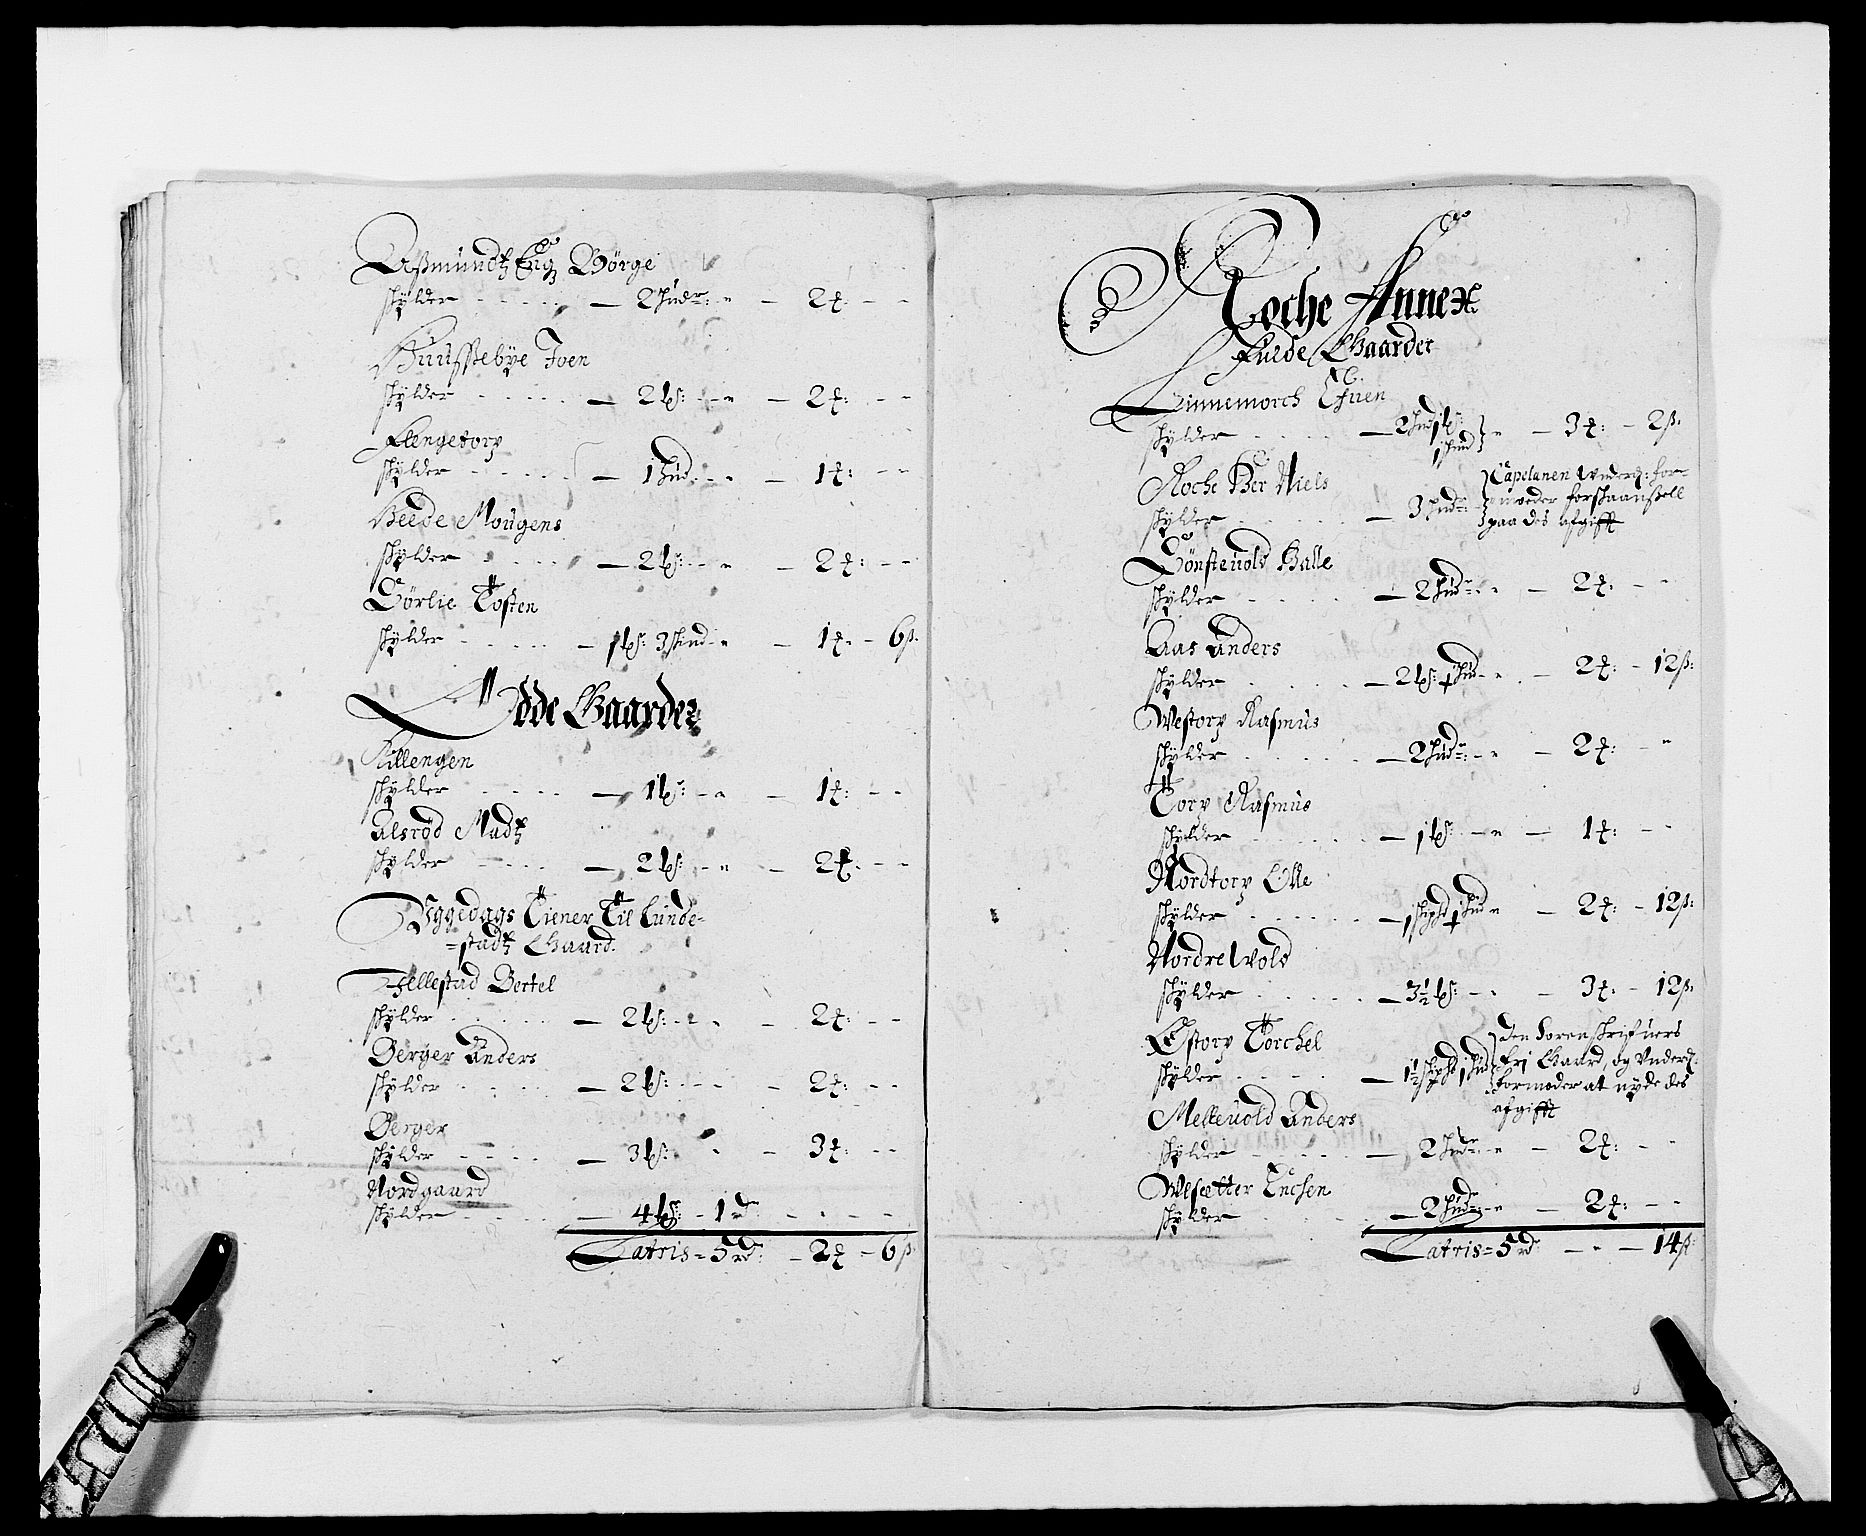 Aßmundz Eng Børge
schylder - - - - - — 2 Hudr: - — 2 ƶ: - -
Huusssebye Joen
schylder - - - - - — 2 ℔: - - — 2 ƶ: - -
Flengetorp
schylder - - - - - — 1 Hud - - — 1 ƶ: - -
Beede Mougens
schylder - - - - — 2 ℔: - - — 2 ƶ: - -
Dørlie Tosten
schylder - - - - — 1 ℔: 3 schind - — 1 ƶ: - 6 ß:
Ødde Gaarder
Killengen
schylder - - - - — 1 ℔: - - — 1 ƶ: - -
Alsrød Madz
schylder - - - - — 2 ℔: - - — 2 ƶ: - -
Vggedags Tiener Til Lunde-
=stadz Gaard.
Fellestad Bertel
schylder - - - - - — 2 ℔: - - — 2 ƶ: - -
Berger Anders
schylder - - - - — 2 ℔: - - — 2 ƶ: - -
Berger
schylder - - - - — 3 ℔: - — 3 ƶ: - -
Nordgaard
schylder - - - - — 4 ℔: - 1 rd - - - -
Latris = 5 rd: - 2 ƶ - 6 ß:
Roche Annex
Fulde Gaarder
Linnemorch Efuen
schylder - - - - — 2 Hud 1 ℔: 1 schind - — 3 ƶ: - 2 ß:
Roche Per Niels
schylder - - - - — 3 Hudr: Capelanen Underd: for-
moder forschaanßell
paa des afgifft
Tønsteuold Halle
schylder - - - - — 2 Hudr - - — 2 ƶ: - -
Aas Anders
schylder - - - - — 2 ℔: 1 Hud - - — 2 ƶ: - 12 ß:
Westorp Rasmus
schylder - - - - — 2 Hudr: - — 2 ƶ: - -
Torp Rasmus
schylder - - - - — 1 ℔: - - — 1 ƶ: - -
Nordtorp Olle
schylder - - - - — 1 schipd 1 Hud - — 2 ƶ: - 12 ß:
Nordre Wold
schylder - - - - — 3 1/2 ℔: - - — 3 ƶ: - 12 ß:
Østorp Torchel
schylder - - - - — 1 1/2 schipd 1 Hud Den Sorenschrifuers
fri Gaard, og Underd:
formoder at nyde des
afgifft
Melleuold Anders
schylder - - - - — 2 Hudr - - — 2 ƶ: - -
Wlsætter Enchen
schylder - - - - — 2 Hudr: - — 2 ƶ: - -
Latris = 5 rd - - — 14 ß: